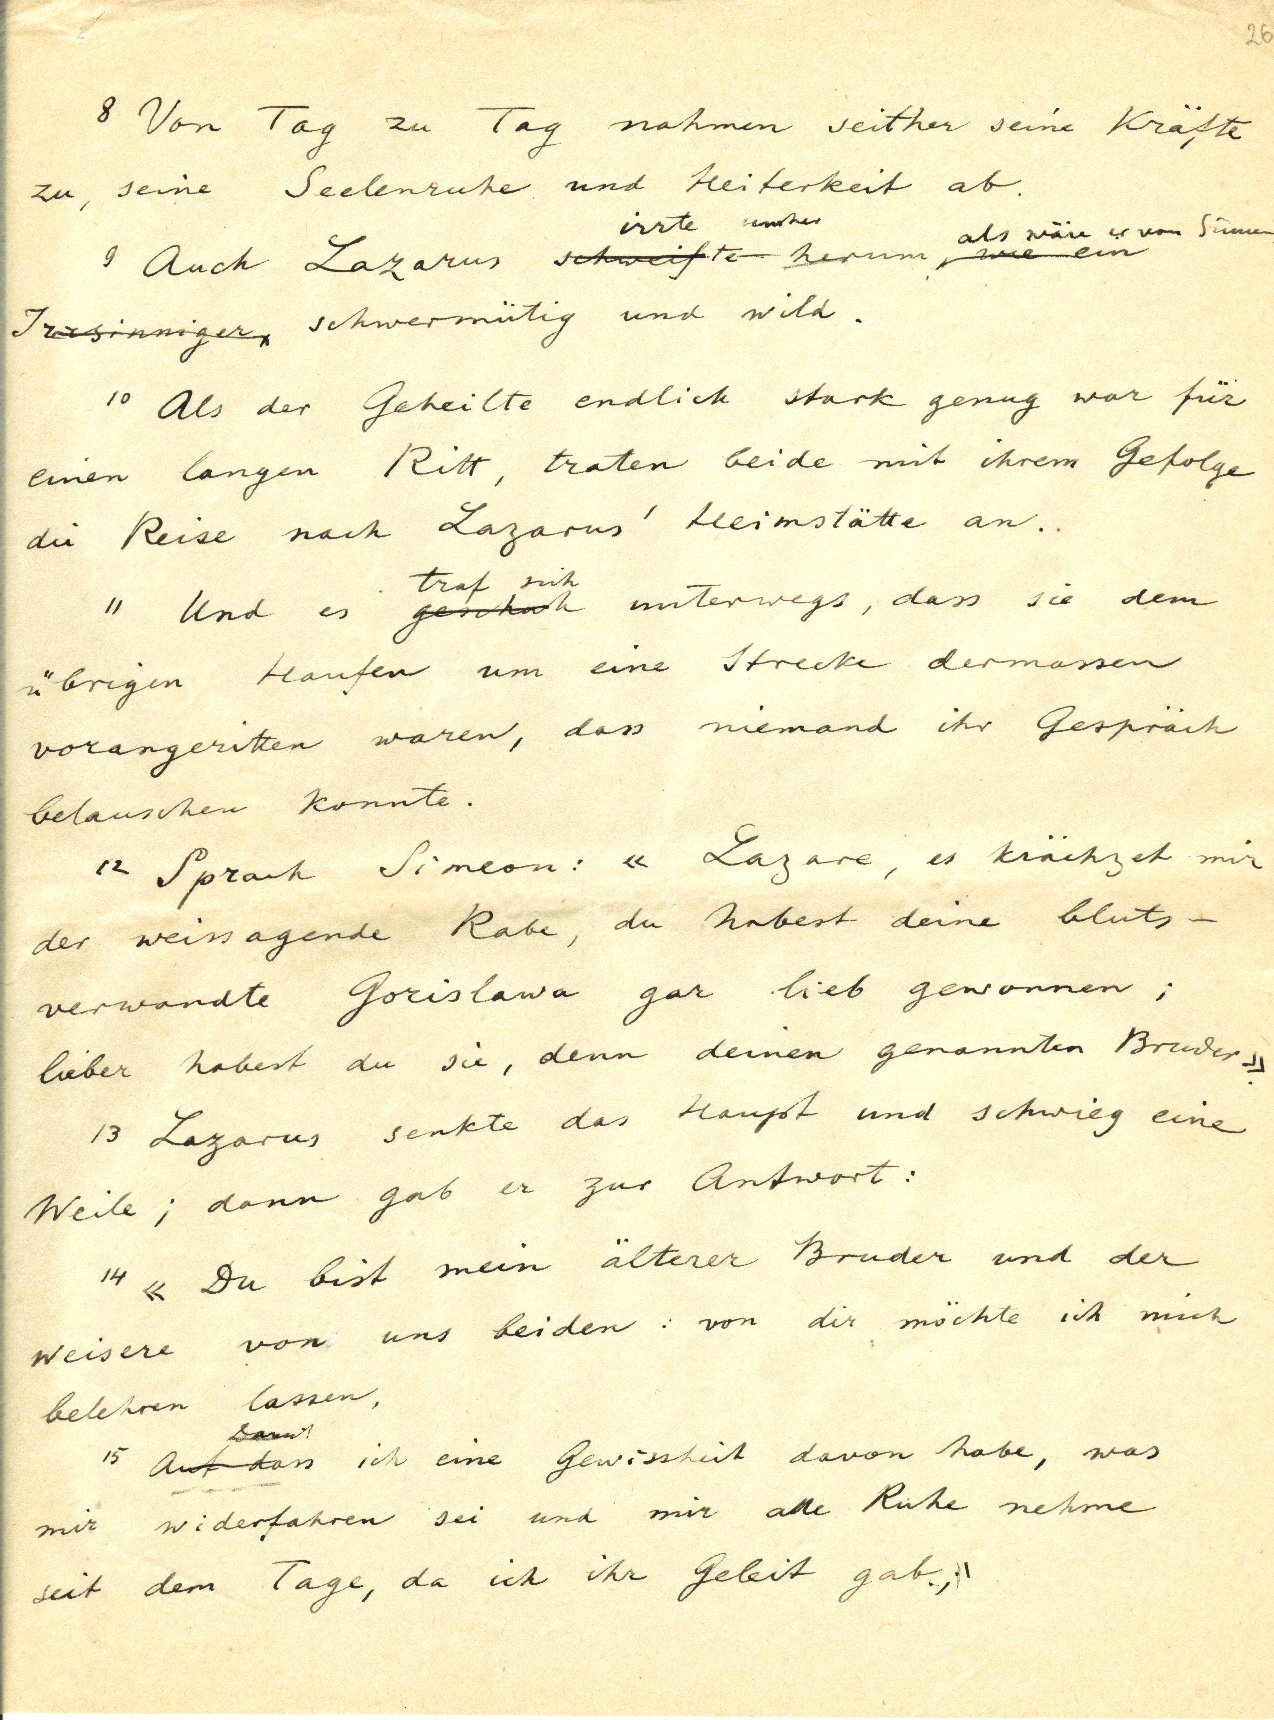 26
8 Von Tag zu Tag nahmen seither seine Kräfte
zu, seine Seelenruhe und Heiterkeit ab.
irrte umher als wäre er von Sinnen
9 Auch Lazarus schweifte herum, wie ein
Irrsinniger, schwermütig und wild.
10 Als der Geheilte endlich stark genug war für
einen langen Ritt, traten beide mit ihrem Gefolge
die Reise nach Lazarus' Heimstätte an.
traf sich
11 Und es geschah unterwegs, dass sie dem
übrigen Haufen um eine Strecke dermassen
vorangeritten waren, dass niemand ihr Gespräch
belauschen konnte.
12 Sprach Simeon: « Lazare, es krächzet mir
der weissagende Rabe, du habest deine bluts-
verwandte Gorislawa gar lieb gewonnen;
lieber habest du sie, denn deinen genannten Bruder.»
13 Lazarus senkte das Haupt und schwieg eine
Weile; dann gab er zur Antwort:
14 « Du bist mein älterer Bruder und der
weisere von uns beiden: von dir möchte ich mich
belehren lassen,
Damit
15 Auf dass ich eine Gewissheit davon habe, was
mir widerfahren sei und mir alle Ruhe nehme
seit dem Tage, da ich ihr Geleit gab.»